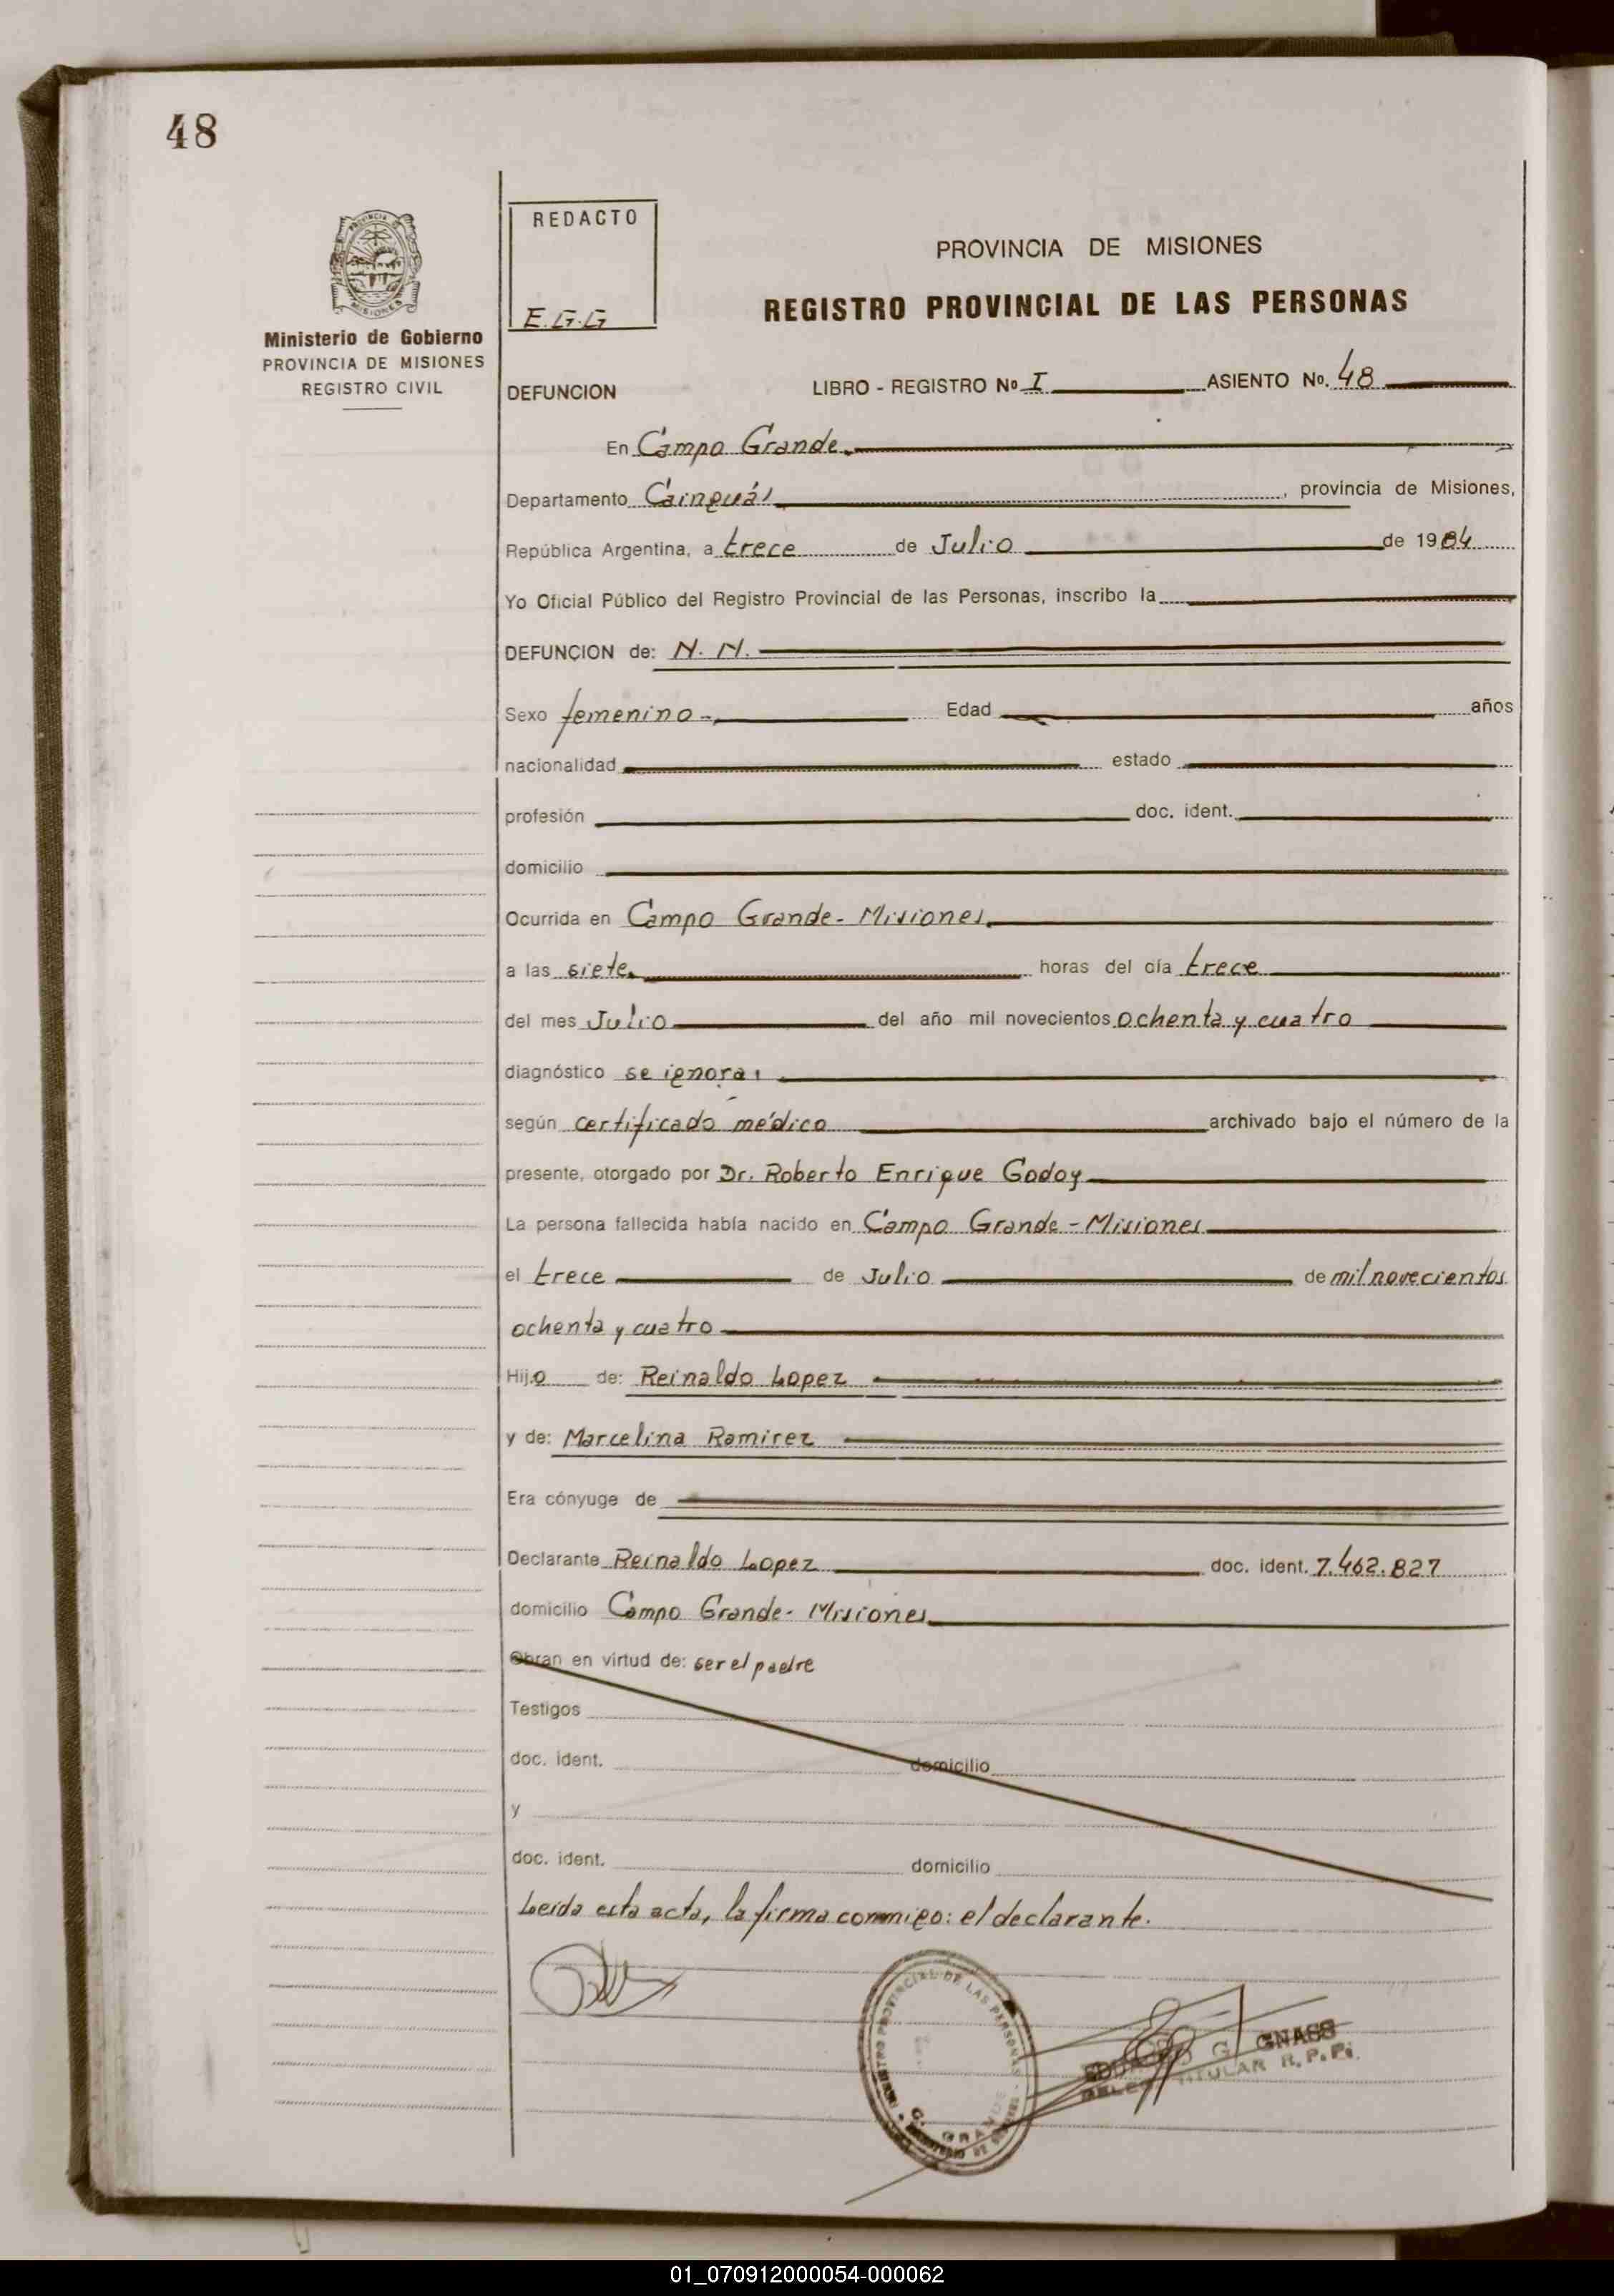 48
REDACTO
E.G.G
PROVINCIA DE MISIONES
REGISTRO PROVINCIAL DE LAS PERSONAS
PROVINCIA
MISIONES
Ministerio de Gobierno
PROVINCIA DE MISIONES
REGISTRO CIVIL
DEFUNCION LIBRO - REGISTRO Nº I ASIENTO Nº. 48
En Campo Grande.
Departamento Cainguás, provincia de Misiones,
República Argentina, a trece de Julio de 1984
Yo Oficial Público del Registro Provincial de las Personas, inscribo la
DEFUNCION de: N. N.
Sexo femenino Edad años
nacionalidad estado
profesión doc. ident.
domicilio
Ocurrida en Campo Grande - Misiones.
a las siete. horas del día trece
del mes Julio del año mil novecientos ochenta y cuatro
diagnóstico se ignora.
según certificado médico archivado bajo el número de la
presente, otorgado por Dr. Roberto Enrique Godoy
La persona fallecida había nacido en Campo Grande - Misiones
el trece de Julio de mil novecientos
ochenta y cuatro
Hijo de: Reinaldo Lopez
y de: Marcelina Ramirez
Era cónyuge de
Declarante Reinaldo Lopez doc. ident. 7.462.827
domicilio Campo Grande - Misiones
Obran en virtud de: ser el padre
Testigos
doc. ident. domicilio
y
doc. ident. domicilio
Leída esta acta, la firma conmigo: el declarante.
PROVINCIAL DE LAS PERSONAS
GRANDE
G. GNASS
TITULAR R.P.P.
01_070912000054-000062